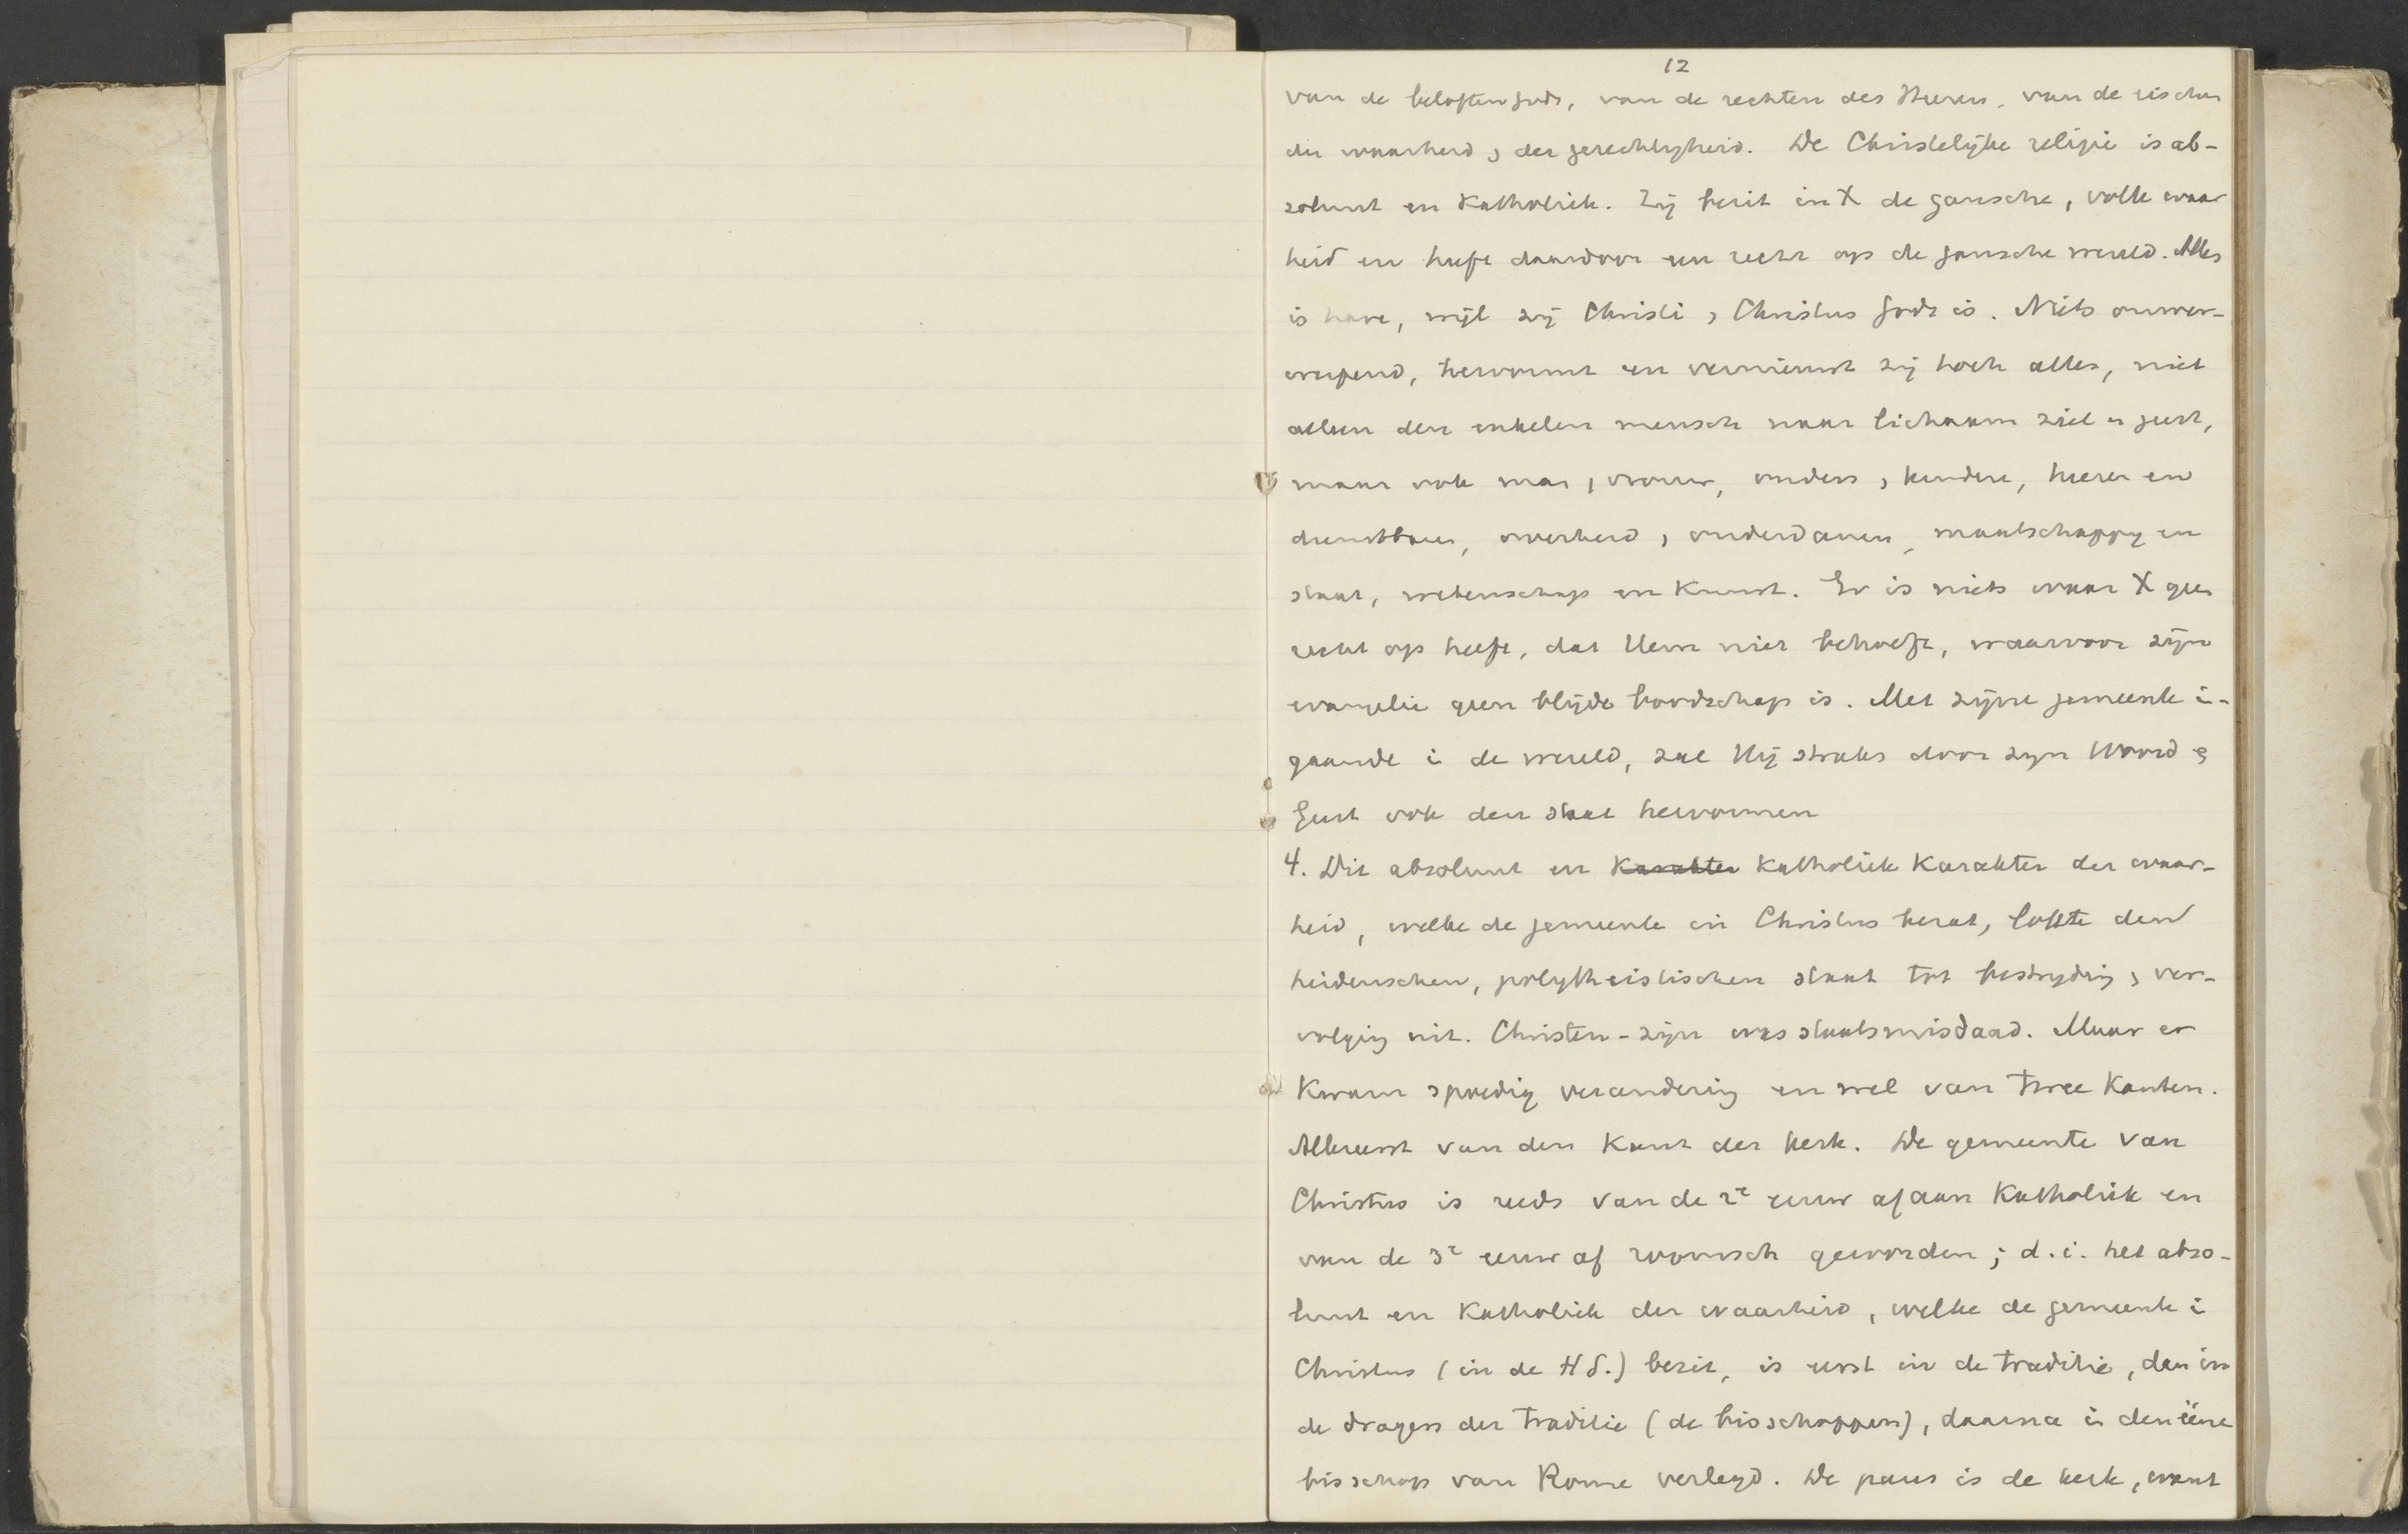 12
van de beloften Gods, van de rechten des Heeren, van de eischen
der waarheid , der gerechtigheid. De Christelijke religie is ab-
soluut en Katholiek. Zij bezit in X de gansche, volle waar
heid en heeft daardoor een recht op de gansche wereld. Alles
is hare, wijl zij Christi , Christus Gods is. Niets omver-
werpend, hervormt en vernieuwt zij toch alles, niet
alleen den enkelen mensch naar lichaam ziel en geest,
maar ook man , vrouw, ouders , kindere, heeren en
dienstboden, overheid , onderdanen, maatschappij en
staat, wetenschap en Kunst. Er is niets waar X geen
recht op heeft, dat Hem niet behoeft, waarvoor zijn
evangelie geen blijde boodschap is. Met zijne gemeente i-
gaande i de wereld, zal Hij straks door zijn Woord &
Geest ook den staat hervormen
4. Dit absoluut en Karakter Katholiek Karakter der waar-
heid, welke de gemeente in Christus bezat, lokte den
heidenschen, polytheistischen staat tot bestrijding , ver-
volging uit. Christen-zijn was staatsmisdaad. Maar er
Kwam spoedig verandering en wel van twee Kanten.
Allereerst van den Kant der Kerk. De gemeente van
Christus is reeds van de 2e eeuw af aan Katholiek en
van de 3e eeuw af roomsch geworden; d.i. het abso-
luut en Katholiek der waarheid, welke de gemeente i
Christus (in de H S.) bezit, is eerst in de traditie, dan in
de dragers der traditie (de bisschoppen), daarna i den éénen
bisschop van Rome verlegd. De paus is de kerk, want